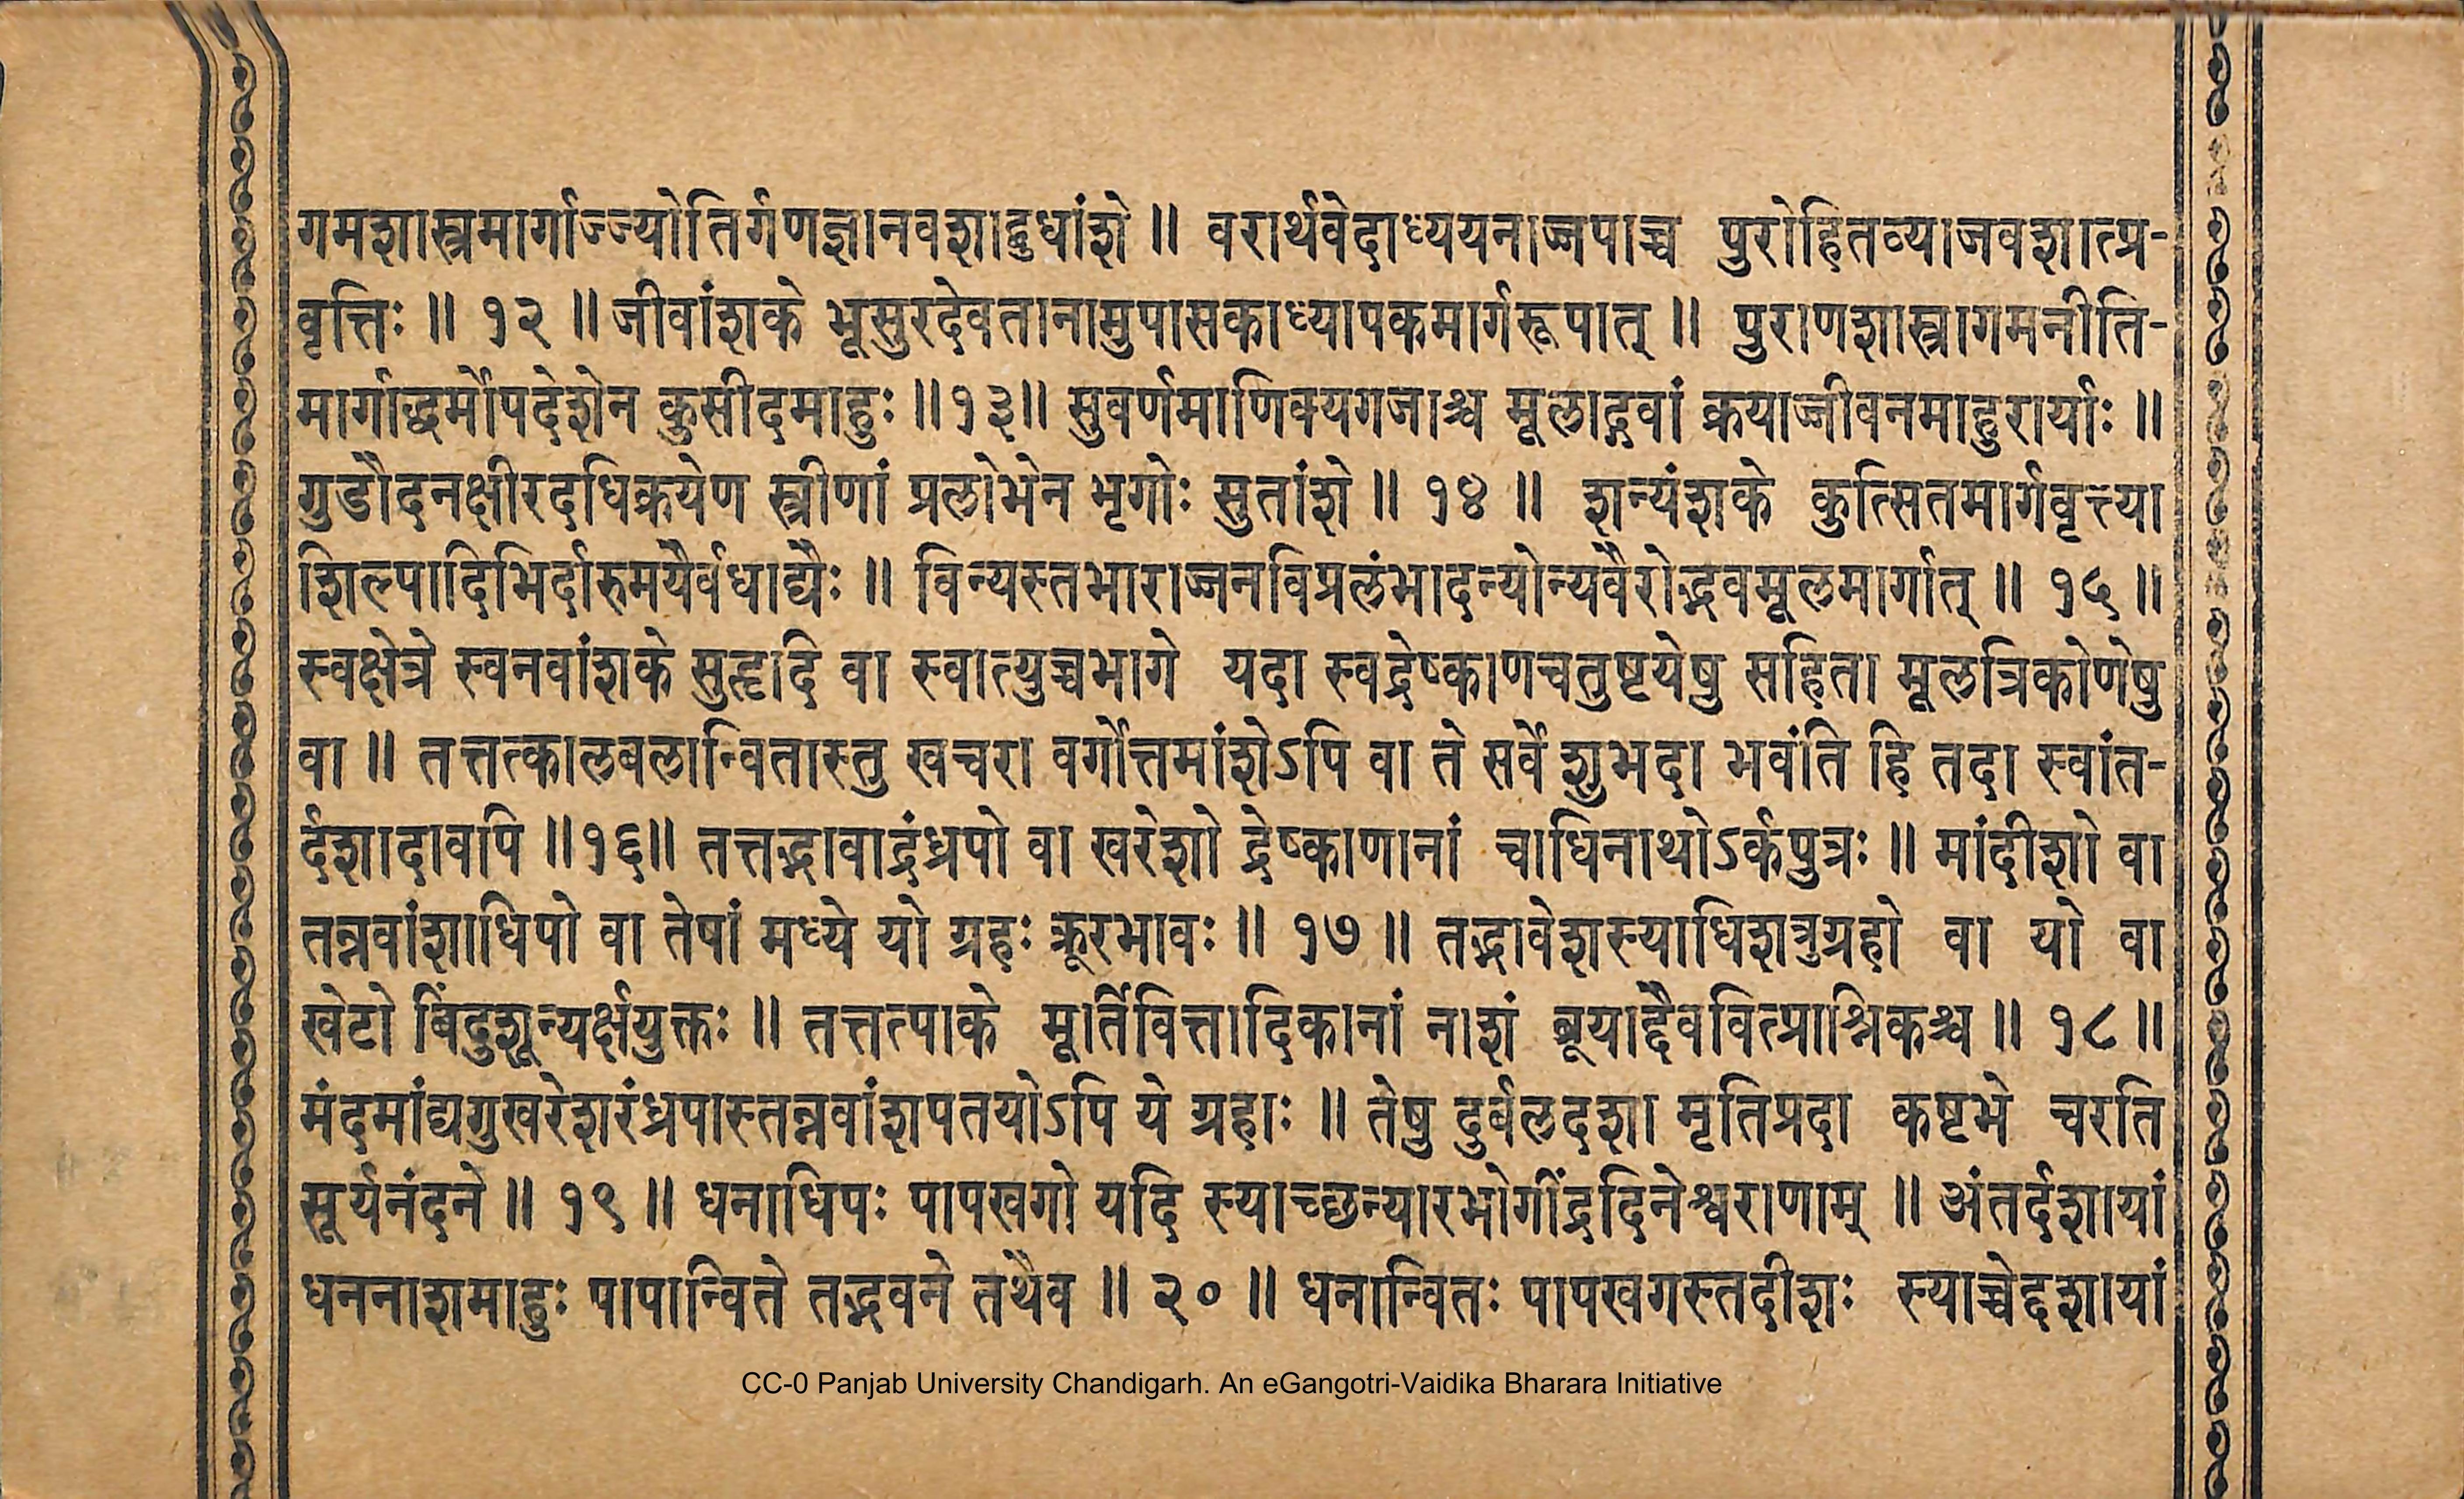 गमशास्त्रमार्गाज्ज्योतिर्गणज्ञानवशाद्बुधांशे ॥ वरार्थवेदाध्ययनाज्जपाच्च पुरोहितव्याजवशात्प्र-
वृत्तिः ॥ १२ ॥ जीवांशके भूसुरदेवतानामुपासकाध्यापकमार्गरूपात् ॥ पुराणशास्त्रागमनीति-
मार्गाद्धर्मोपदेशेन कुसीदमाहुः ॥१३॥ सुवर्णमाणिक्यगजाश्च मूलाद्गवां क्रयाज्जीवनमाहुरार्याः ॥
गुडौदनक्षीरदधिक्रयेण स्त्रीणां प्रलोभेन भृगोः सुतांशे ॥ १४ ॥ शन्यंशके कुत्सितमार्गवृत्त्या
शिल्पादिभिर्दारुमयैर्वधाद्यैः ॥ विन्यस्तभाराज्जनविप्रलंभादन्योन्यवैरोद्भवमूलमार्गात् ॥ १५ ॥
स्वक्षेत्रे स्वनवांशके सुहृदि वा स्वात्युच्चभागे यदा स्वद्रेष्काणचतुष्टयेषु सहिता मूलत्रिकोणेषु
वा ॥ तत्तत्कालबलान्वितास्तु खचरा वर्गोत्तमांशेऽपि वा ते सर्वे शुभदा भवंति हि तदा स्वांत-
र्दशादावपि ॥१६॥ तत्तद्भावाद्रंध्रपो वा खरेशो द्रेष्काणानां चाधिनाथोऽर्कपुत्रः ॥ मांदीशो वा
तन्नवांशाधिपो वा तेषां मध्ये यो ग्रहः क्रूरभावः ॥ १७ ॥ तद्भावेशस्याधिशत्रुग्रहो वा यो वा
खेटो बिंदुशून्यर्क्षयुक्तः ॥ तत्तत्पाके मूर्तिवित्तादिकानां नाशं ब्रूयाद्दैववित्प्राश्निकश्च ॥ १८ ॥
मंदमांद्यगुखरेशरंध्रपास्तन्नवांशपतयोऽपि ये ग्रहाः ॥ तेषु दुर्बलदशा मृतिप्रदा कष्टभे चरति
सूर्यनंदने ॥ १९ ॥ धनाधिपः पापखगो यदि स्याच्छन्यारभोगींद्रदिनेश्वराणाम् ॥ अंतर्दशायां
धननाशमाहुः पापान्विते तद्भवने तथैव ॥ २० ॥ धनान्वितः पापखगस्तदीशः स्याच्चेद्दशायां
CC-0 Panjab University Chandigarh. An eGangotri-Vaidika Bharara Initiative